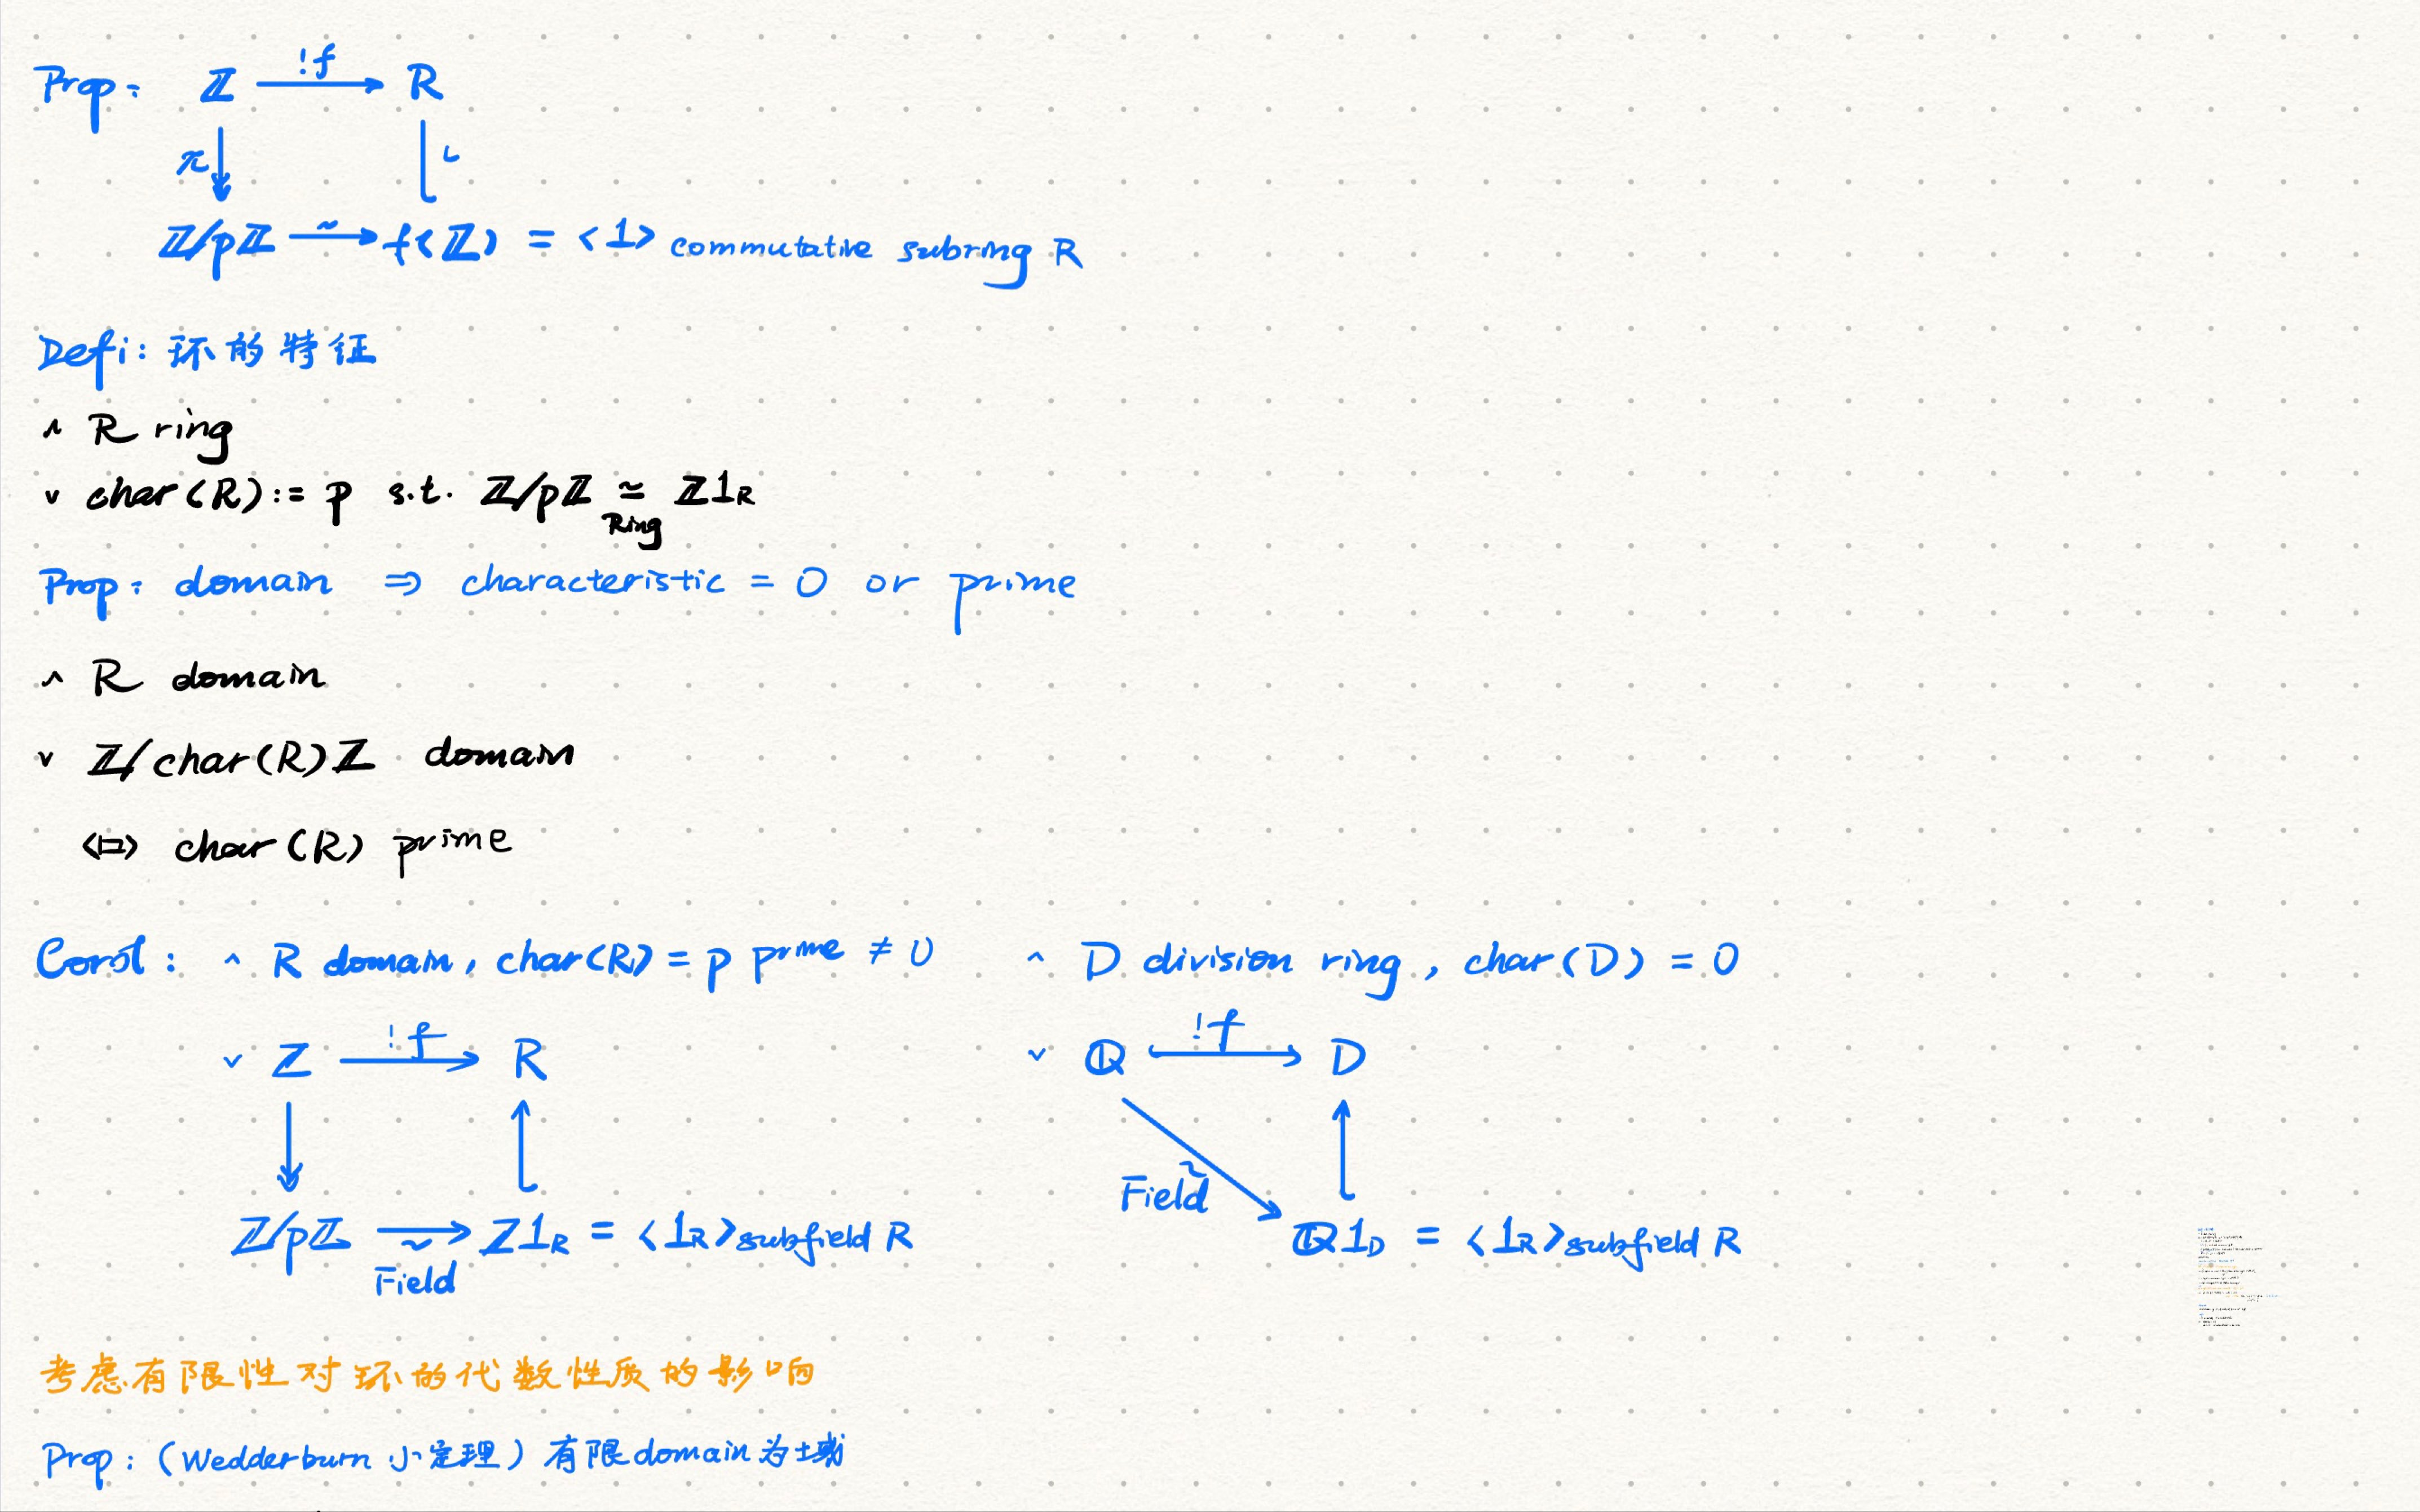 Prop: ℤ !f R
π ι
ℤ/pℤ ~ f(ℤ) = <1> commutative subring R
Defi: 环的特征
^ R ring
v char(R) := p s.t. ℤ/pℤ ≃ ℤ1R
Ring
Prop: domain ⇒ characteristic = 0 or prime
^ R domain
v ℤ/char(R)ℤ domain
<=> char(R) prime
^ R domain, char(R) = p prime ≠ 0
v ℤ !f R
ℤ/pℤ ~ ℤ1R = <1R> subfield R
Field
^ D division ring, char(D) = 0
v ℚ !f D
Field ~
ℚ1D = <1R> subfield R
考虑有限性对环的代数性质的影响
Prop: (Wedderburn 小定理) 有限domain为域